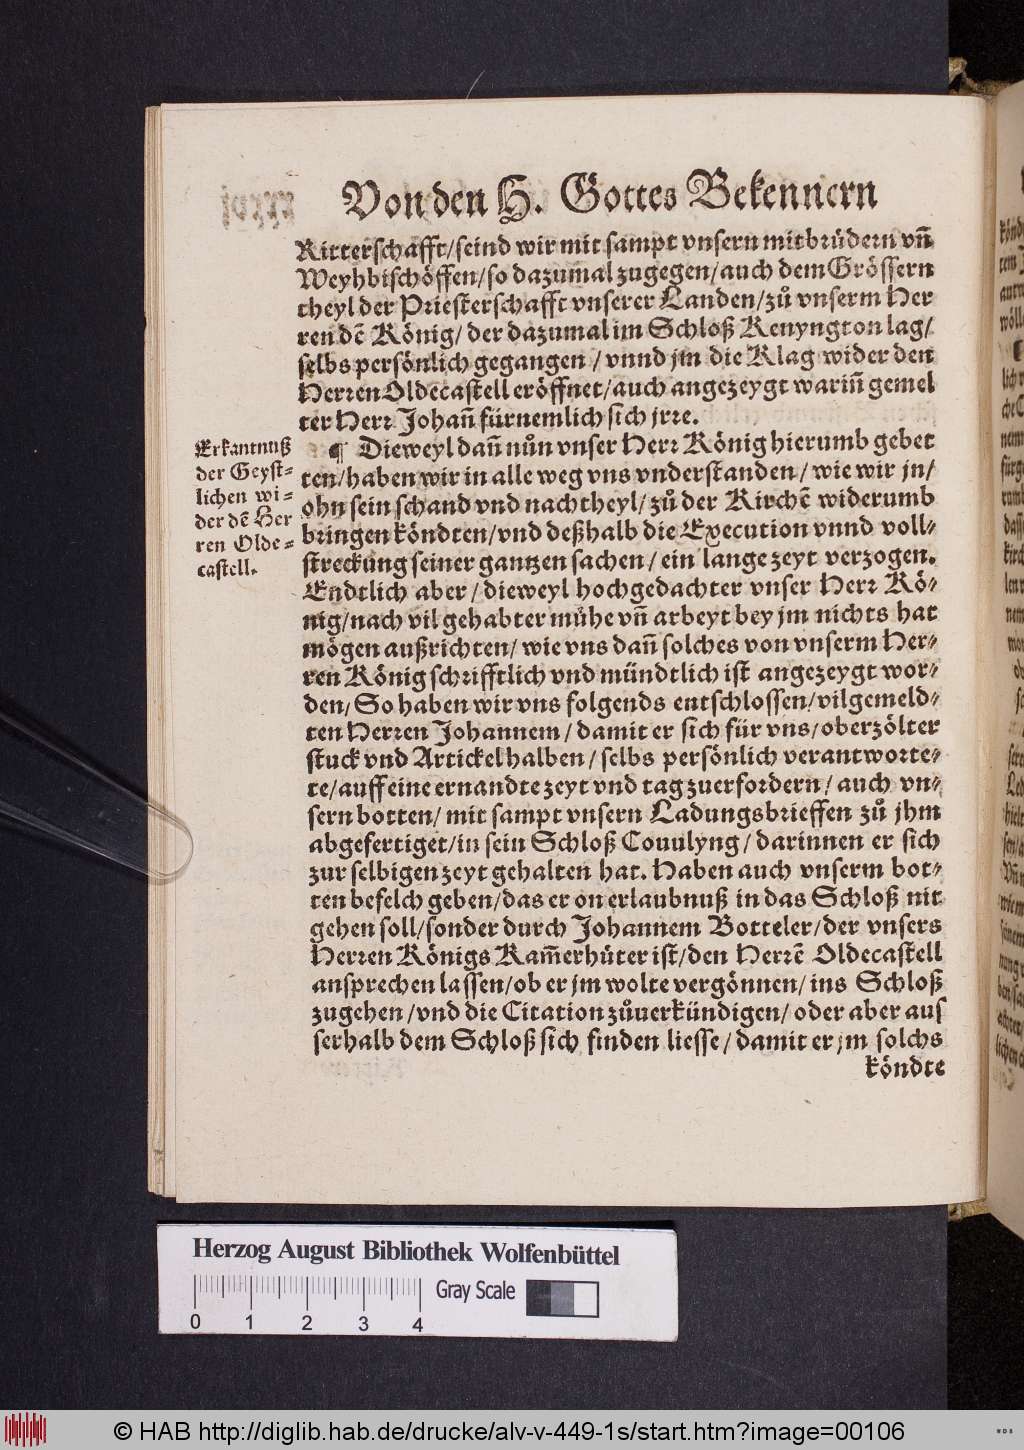 Von den H. Gottes Bekennern
Ritterschafft/seind wir mit sampt vnsern mitbrüdern vn̄
Weyhbischöffen/so dazumal zugegen/auch dem Grössern
theyl der Priesterschafft vnserer Landen/zů vnserm Her
ren dē König/ der dazumal im Schloß Kenyngton lag/
selbs persönlich gegangen / vnnd jm die Klag wider den
Herren Oldecastell eröffnet/auch angezeygt warin̄ gemel
ter Herr Johan̄ fürnemlich sich jrre.
¶ Dieweyl dan̄ nůn vnser Herr König hierumb gebet
ten/haben wir in alle weg vns vnderstanden/ wie wir jn/
ohn sein schand vnd nachtheyl/ zů der Kirchē widerumb
bringen köndten/vnd deßhalb die Execution vnnd voll⸗
streckung seiner gantzen sachen/ ein lange zeyt verzogen.
Endtlich aber/ dieweyl hochgedachter vnser Herr Kö⸗
nig/nach vil gehabter mühe vn̄ arbeyt bey jm nichts hat
mögen außrichten/ wie vns dan̄ solches von vnserm Her⸗
ren König schrifftlich vnd mündtlich ist angezeygt wor⸗
den/ So haben wir vns folgends entschlossen/vilgemeld⸗
ten Herren Johannem/ damit er sich für vns/oberzölter
stuck vnd Artickel halben/ selbs persönlich verantworte⸗
te/auff eine ernandte zeyt vnd tag zuerfordern/ auch vn⸗
sern botten/ mit sampt vnsern Ladungsbrieffen zů jhm
abgefertiget/in sein Schloß Couulyng/ darinnen er sich
zur selbigen zeyt gehalten hat. Haben auch vnserm bot⸗
ten befelch geben/das er on erlaubnuß in das Schloß nit
gehen soll/sonder durch Johannem Botteler/der vnsers
Herren Königs Kam̄erhüter ist/den Herrē Oldecastell
ansprechen lassen/ob er jm wolte vergönnen/ins Schloß
zugehen/vnd die Citation zůuerkündigen/ oder aber aus
serhalb dem Schloß sich finden liesse/ damit er jm solchs
köndte
Erkantnuß
der Geyst⸗
lichen wi⸗
der dē Her
ren Olde⸗
castell.
Herzog August Bibliothek Wolfenbüttel
0 1 2 3 4
Gray Scale
© HAB http://diglib.hab.de/drucke/alv-v-449-1s/start.htm?image=00106